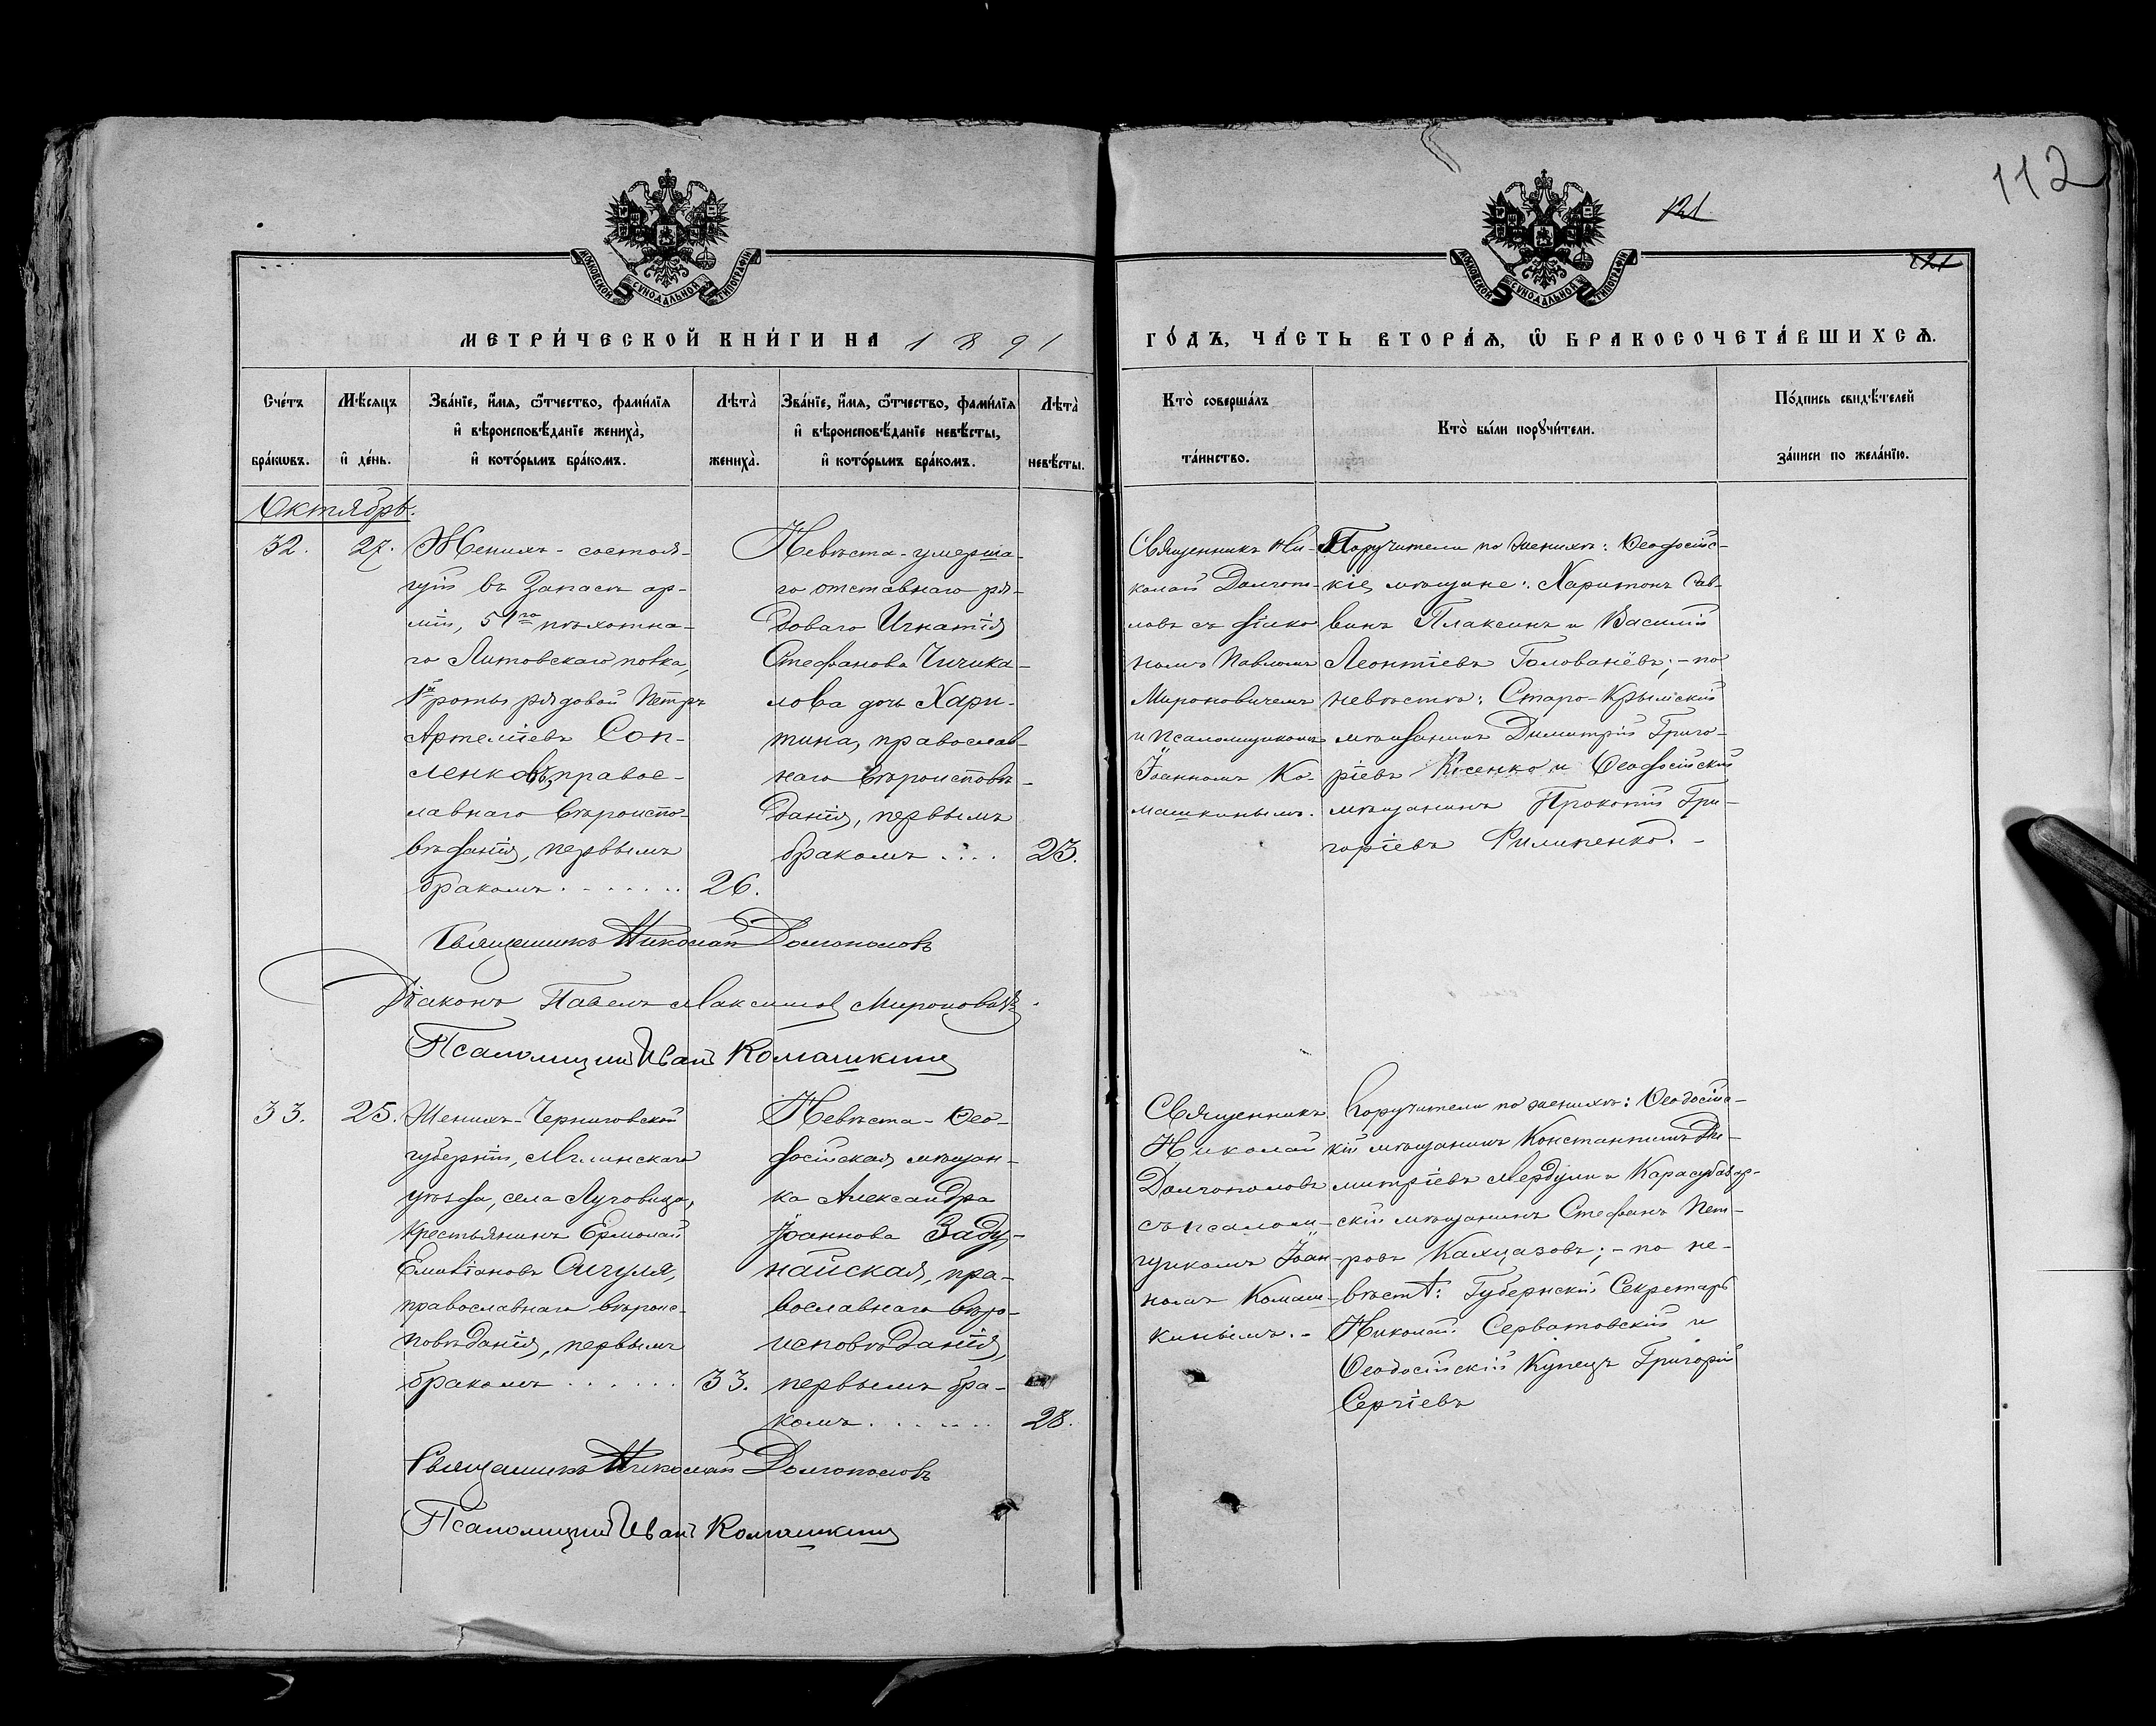 112
121
121
МОСКОВСКОЙ СѴНОДАЛЬНОЙ ТИПОГРАФІИ
МОСКОВСКОЙ СѴНОДАЛЬНОЙ ТИПОГРАФІИ
МЕТРИ́ЧЕСКОЙ КНИ́ГИ НА 1891
ГО́ДЪ, ЧА́СТЬ ВТОРА́Ѧ, Ѡ҆ БРАКОСОЧЕТА́ВШИХСѦ.
Сче́тъ
бра́кѡвъ.
Мѣ́сяцъ
и҆ де́нь.
Зва́нїе, и҆́мя, ѻ҆́тчество, фами́лїя
и҆ вѣроисповѣ́данїе жениха̀,
и҆ кото́рымъ бра́комъ.
Лѣта̀
жениха̀.
Зва́нїе, и҆́мя, ѻ҆́тчество, фами́лїя
и҆ вѣроисповѣ́данїе невѣ́сты,
и҆ кото́рымъ бра́комъ.
Лѣта̀
невѣ́сты.
Кто̀ соверша́лъ
та́инство.
Кто̀ бы́ли порꙋчи́тели.
По́дпись свидѣ́телей
за́писи по жела́нїю.
Октябрь.
32.
27.
Женихъ - состоя-
щій въ Запасѣ ар-
міи, 51го пѣхотна-
го Литовскаго полка,
1й роты рядовой Петръ
Артеміевъ Соп-
ленковъ, правос-
лавнаго вѣроиспо-
вѣданія, первымъ
бракомъ . . . . . . .
26.
Невѣста - умерша-
го отставнаго ря-
доваго Игнатія
Стефанова Чичика-
лова дочь Хари-
тина, православ-
наго вѣроисповѣ-
данія, первымъ
бракомъ . . . .
23.
Священникъ Ни-
колай Долгопо-
ловъ съ діако
номъ Павломъ
Мироновичемъ
и псаломщикомъ
Іоанномъ Ко-
машкинымъ.
Поручители по женихѣ: Ѳеодосійс-
кіе, мѣщане: Харитонъ Сав-
винъ Плаксинъ и Василій
Леонтіевъ Голованёвъ; - по
невѣстѣ: Старо-Крымскій
мѣщанинъ Димитрій Григо-
ріевъ Кисенко и Ѳеодосійскій
мѣщанинъ Прокопій Гри-
горіевъ Филипенко. -
Священникъ Николай Долгополовъ
Діаконъ Павелъ Максимов Мироновичъ.
Псаломщикъ Иванъ Комашкинъ
33.
25.
Женихъ - Черниговской
губерніи, Мглинскаго
уѣзда, села Луговица,
крестьянинъ Ермолай
Емиліановъ Сигуля,
православнаго вѣроис-
повѣданія, первымъ
бракомъ . . . . . .
33.
Невѣста - Ѳео-
досійская мѣщан-
ка Александра
Іоаннова Заду-
найская, пра-
вославнаго вѣро-
исповѣданія,
первымъ бра-
комъ . . . . . .
28.
Священникъ
Николай
Долгополовъ
съ псалом-
щикомъ Іоан-
номъ Комаш-
кинымъ. -
Поручители по женихѣ: Ѳеодосійс-
кій мѣщанинъ Константинъ Ди-
митріевъ Мердули и Карасубазар-
скій мѣщанинъ Стефанъ Пет-
ровъ Калцазовъ; - по не-
вѣстѣ: Губернскій Секретарь
Николай Серватовскій и
Ѳеодосійскій Купецъ Григорій
Сергіевъ
Священникъ Николай Долгополовъ
Псаломщикъ Иванъ Комашкинъ